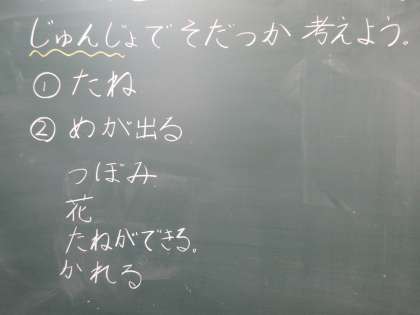 じゅんじょでそだっか考えよう。
①たね
②めが出る
つぼみ
花
たねができる。
かれる